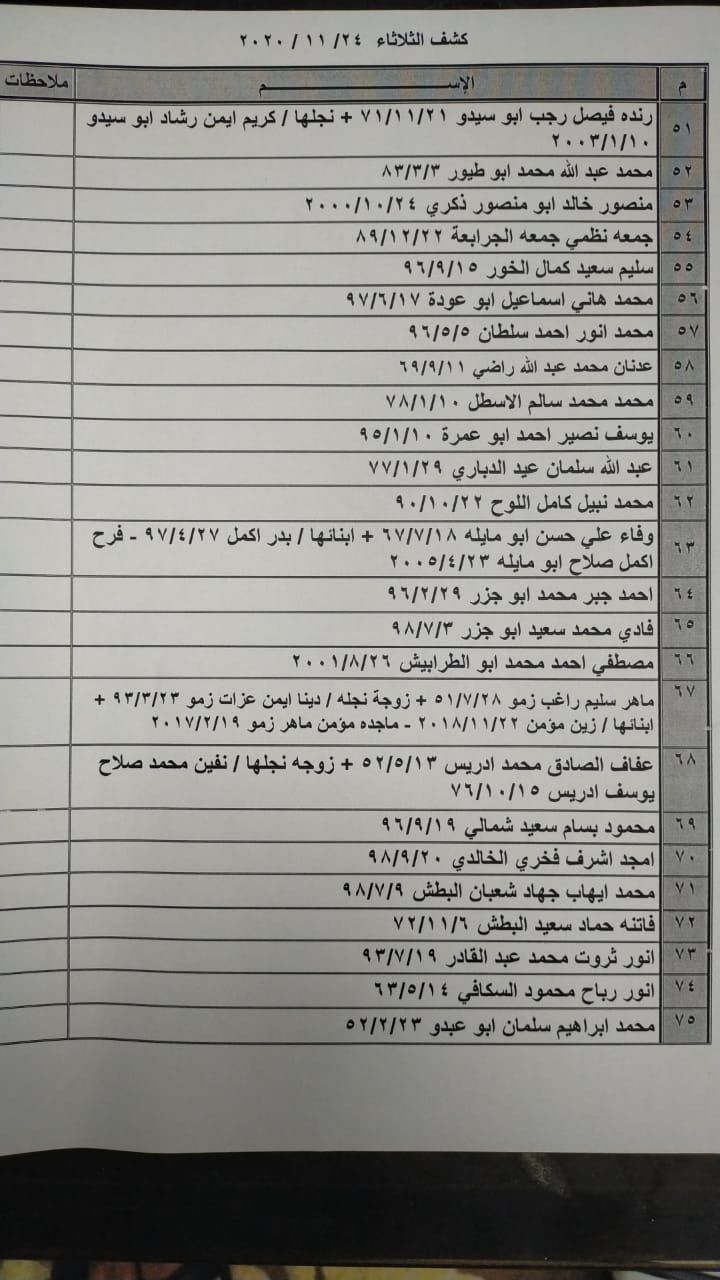 كشف الثلاثاء ٢٤/ ١١ / ٢٠٢٠
م الإســـــــم ملاحظات
٥١ رنده فيصل رجب ابو سيدو ٧١/١١/٢١ + نجلها / كريم ايمن رشاد ابو سيدو
٢٠٠٣/١/١٠
٥٢ محمد عبد الله محمد ابو طيور ٨٣/٣/٣
٥٣ منصور خالد ابو منصور ذكري ٢٠٠٠/١٠/٢٤
٥٤ جمعه نظمي جمعه الجرابعة ٨٩/١٢/٢٢
٥٥ سليم سعيد كمال الخور ٩٦/٩/١٥
٥٦ محمد هاني اسماعيل ابو عودة ٩٧/٦/١٧
٥٧ محمد انور احمد سلطان ٩٦/٥/٥
٥٨ عدنان محمد عبد الله راضي ٦٩/٩/١١
٥٩ محمد محمد سالم الاسطل ٧٨/١/١٠
٦٠ يوسف نصير احمد ابو عمرة ٩٥/١/١٠
٦١ عبد الله سلمان عيد الدباري ٧٧/١/٢٩
٦٢ محمد نبيل كامل اللوح ٩٠/١٠/٢٢
٦٣ وفاء علي حسن ابو مايله ٦٧/٧/١٨ + ابنائها / بدر اكمل ٩٧/٤/٢٧ - فرح
اكمل صلاح ابو مايله ٢٠٠٥/٤/٢٣
٦٤ احمد جبر محمد ابو جزر ٩٦/٢/٢٩
٦٥ فادي محمد سعيد ابو جزر ٩٨/٧/٣
٦٦ مصطفي احمد محمد ابو الطرابيش ٢٠٠١/٨/٢٦
٦٧ ماهر سليم راغب زمو ٥١/٧/٢٨ + زوجة نجله / دينا ايمن عزات زمو ٩٣/٣/٢٣ +
ابنائها / زين مؤمن ٢٠١٨/١١/٢٢ - ماجده مؤمن ماهر زمو ٢٠١٧/٢/١٩
٦٨ عفاف الصادق محمد ادريس ٥٢/٥/١٣ + زوجه نجلها / نفين محمد صلاح
يوسف ادريس ٧٦/١٠/١٥
٦٩ محمود بسام سعيد شمالي ٩٦/٩/١٩
٧٠ امجد اشرف فخري الخالدي ٩٨/٩/٢٠
٧١ محمد ايهاب جهاد شعبان البطش ٩٨/٧/٩
٧٢ فاتنه حماد سعيد البطش ٧٢/١١/٦
٧٣ انور ثروت محمد عبد القادر ٩٣/٧/١٩
٧٤ انور رباح محمود السكافي ٦٣/٥/١٤
٧٥ محمد ابراهيم سلمان ابو عبدو ٥٢/٢/٢٣